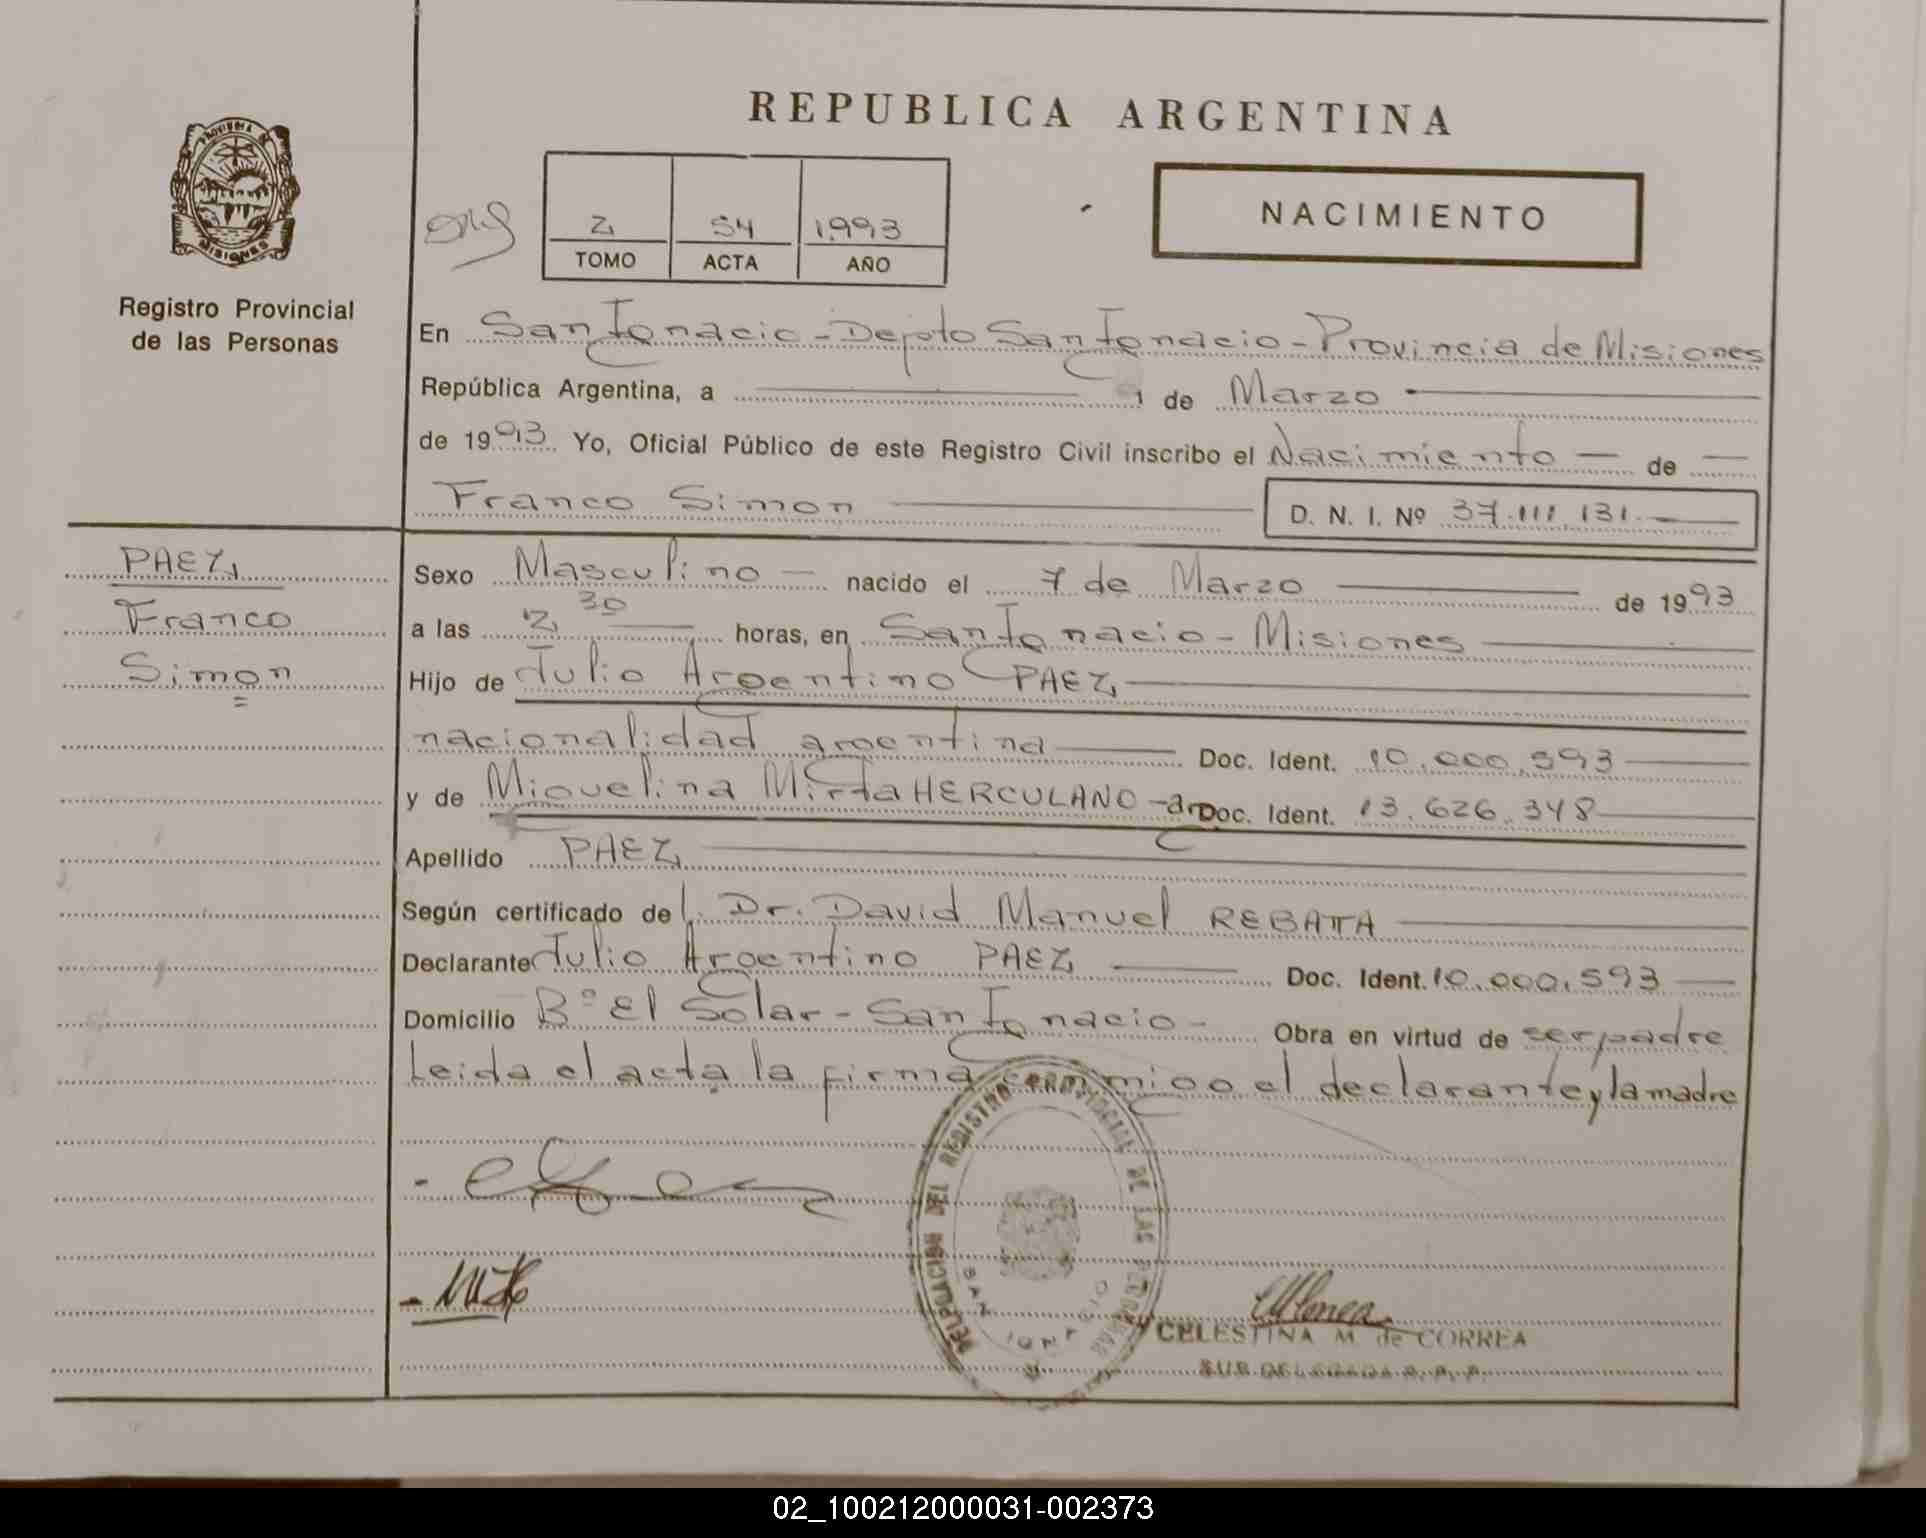 REPUBLICA ARGENTINA
PROVINCIA DE
MISIONES
Registro Provincial
de las Personas
2 54 1993
TOMO ACTA AÑO
NACIMIENTO
En San Ignacio - Depto San Ignacio - Provincia de Misiones
República Argentina, a 9 de Marzo
de 1993 Yo, Oficial Público de este Registro Civil inscribo el Nacimiento — de —
Franco Simon D. N. I. Nº 37.111.131.
PAEZ,
Franco
Simon
Sexo Masculino — nacido el 7 de Marzo de 1993
a las 2 30 horas, en San Ignacio - Misiones
Hijo de Julio Argentino PAEZ,
nacionalidad argentina Doc. Ident. 10.000.593
y de Miguelina Mirta HERCULANO - arg Doc. Ident. 13.626.348
Apellido PAEZ,
Según certificado del Dr. David Manuel REBATTA
Declarante Julio Argentino PAEZ, Doc. Ident. 10.000.593
Domicilio Bº El Solar - San Ignacio - Obra en virtud de ser padre
Leida el acta la firma conmigo el declarante y la madre
DELEGACION DEL REGISTRO PROVINCIAL DE LAS PERSONAS
SAN IGNACIO
CELESTINA M. de CORREA
SUB DELEGADA R. P. P.
02_100212000031-002373